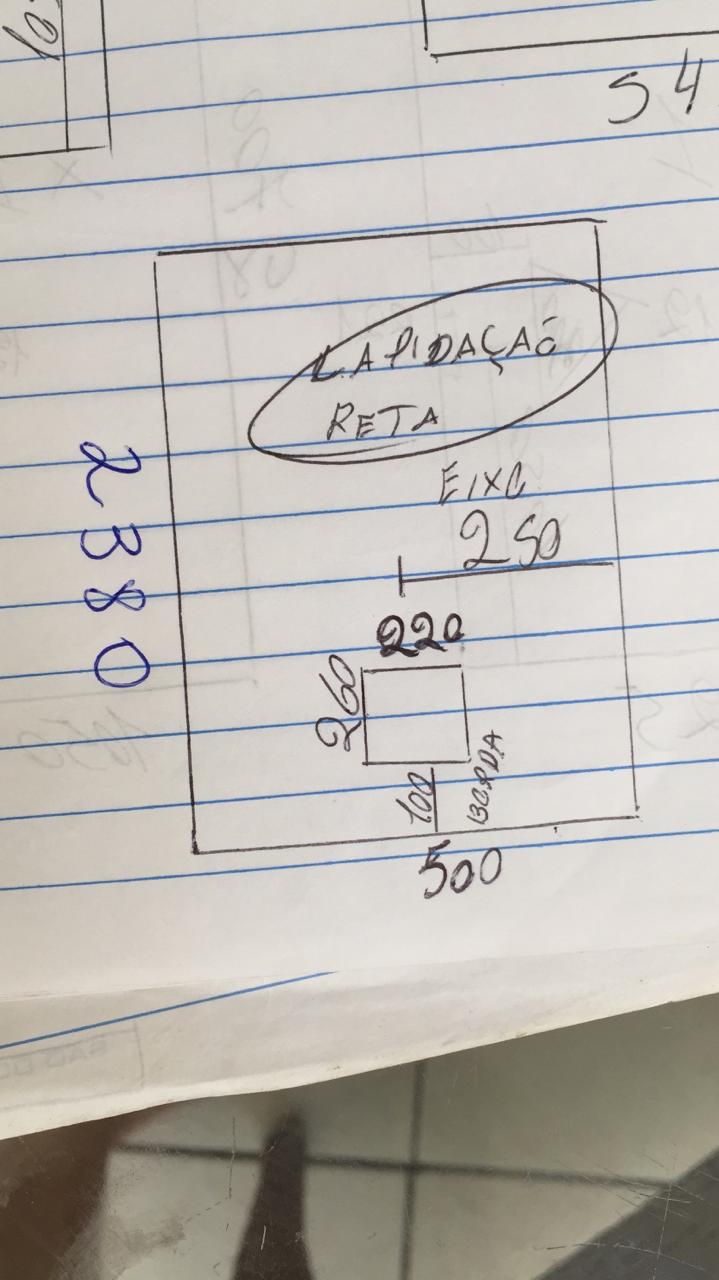 54
LAPIDAÇAÓ
RETA
EIXO
250
2380
220
260
100
BORDA
500
1050